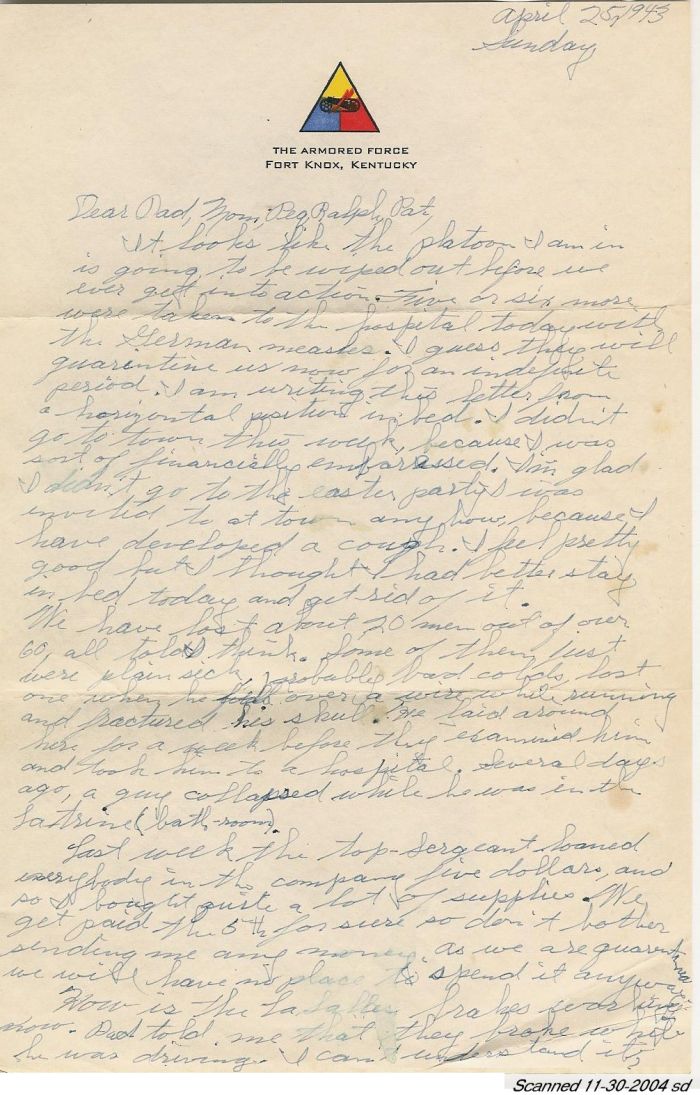 April 25, 1943
Sunday
THE ARMORED FORCE
FORT KNOX, KENTUCKY
Dear Dad, Mom, Peg, Ralph, Pat,
It looks like the platoon I am in
is going to be wiped out before we
ever get into action. Five or six more
were taken to the hospital today with
the German measles. I guess they will
quarintine us now for an indefinite
period. I am writing this letter from
a horizontal position in bed. I didn't
go to town this week, because I was
sort of financially embarassed. I'm glad
I didn't go to the easter party I was
invited to at town any how, because I
have developed a cough. I feel pretty
good but I thought I had better stay
in bed today and get rid of it.
We have lost about 20 men out of over
60, all told I think. Some of them just
were plain sick, probably bad colds, lost
one when he over a wire while running
and fractured his skull. He laid around
here for a week before they examined him
and took him to a hospital. Several days
ago, a guy collapsed while he was in the
Lattrine (bath-room).
Last week the top-sergeant loaned
everybody in the company five dollars, and
so I bought quite a lot of supplies. We
get paid the 5th for sure so don't bother
sending me any money, as we are
we will have no place to spend it anyway.
How is the brakes working
now. Bud told me that they broke while
he was driving. I can't understand it,
Scanned 11-30-2004 sd